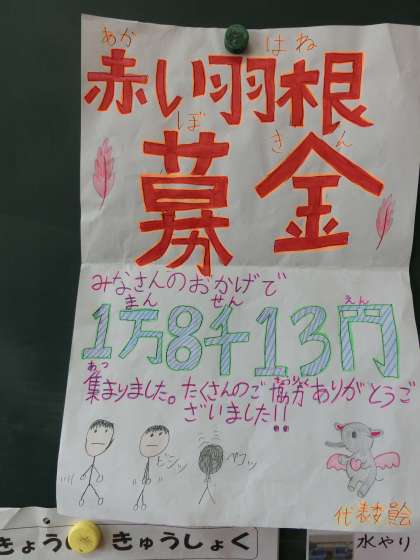 あか はね
赤い羽根
ぼ きん
募金
みなさんのおかげで
まん せん えん
1万8千13円
あつ きょうりょく
集まりました。たくさんのご協力ありがとうご
ざいました!!
ピシッ ペコッ
代表委員会
きゅうしょく
水やり